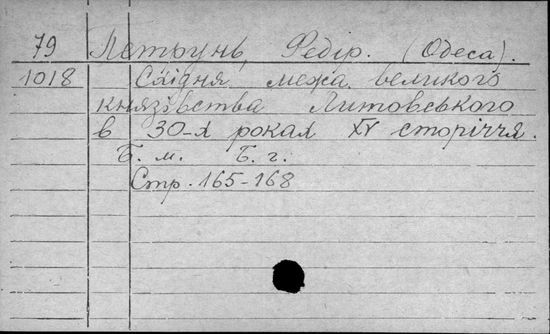 79 Петрунь, Федір. (Одеса).
1018 Східня межа великого
князівства Литовського
в 30-х роках XV сторіччя.
Б. м. Б. г.
Стр. 165-168